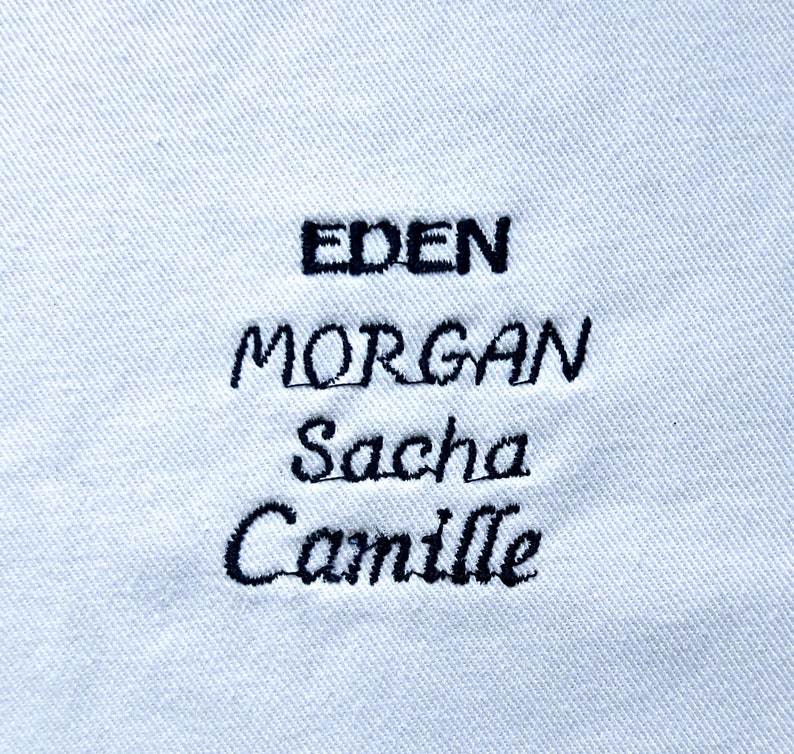 EDEN
MORGAN
Sacha
Camille